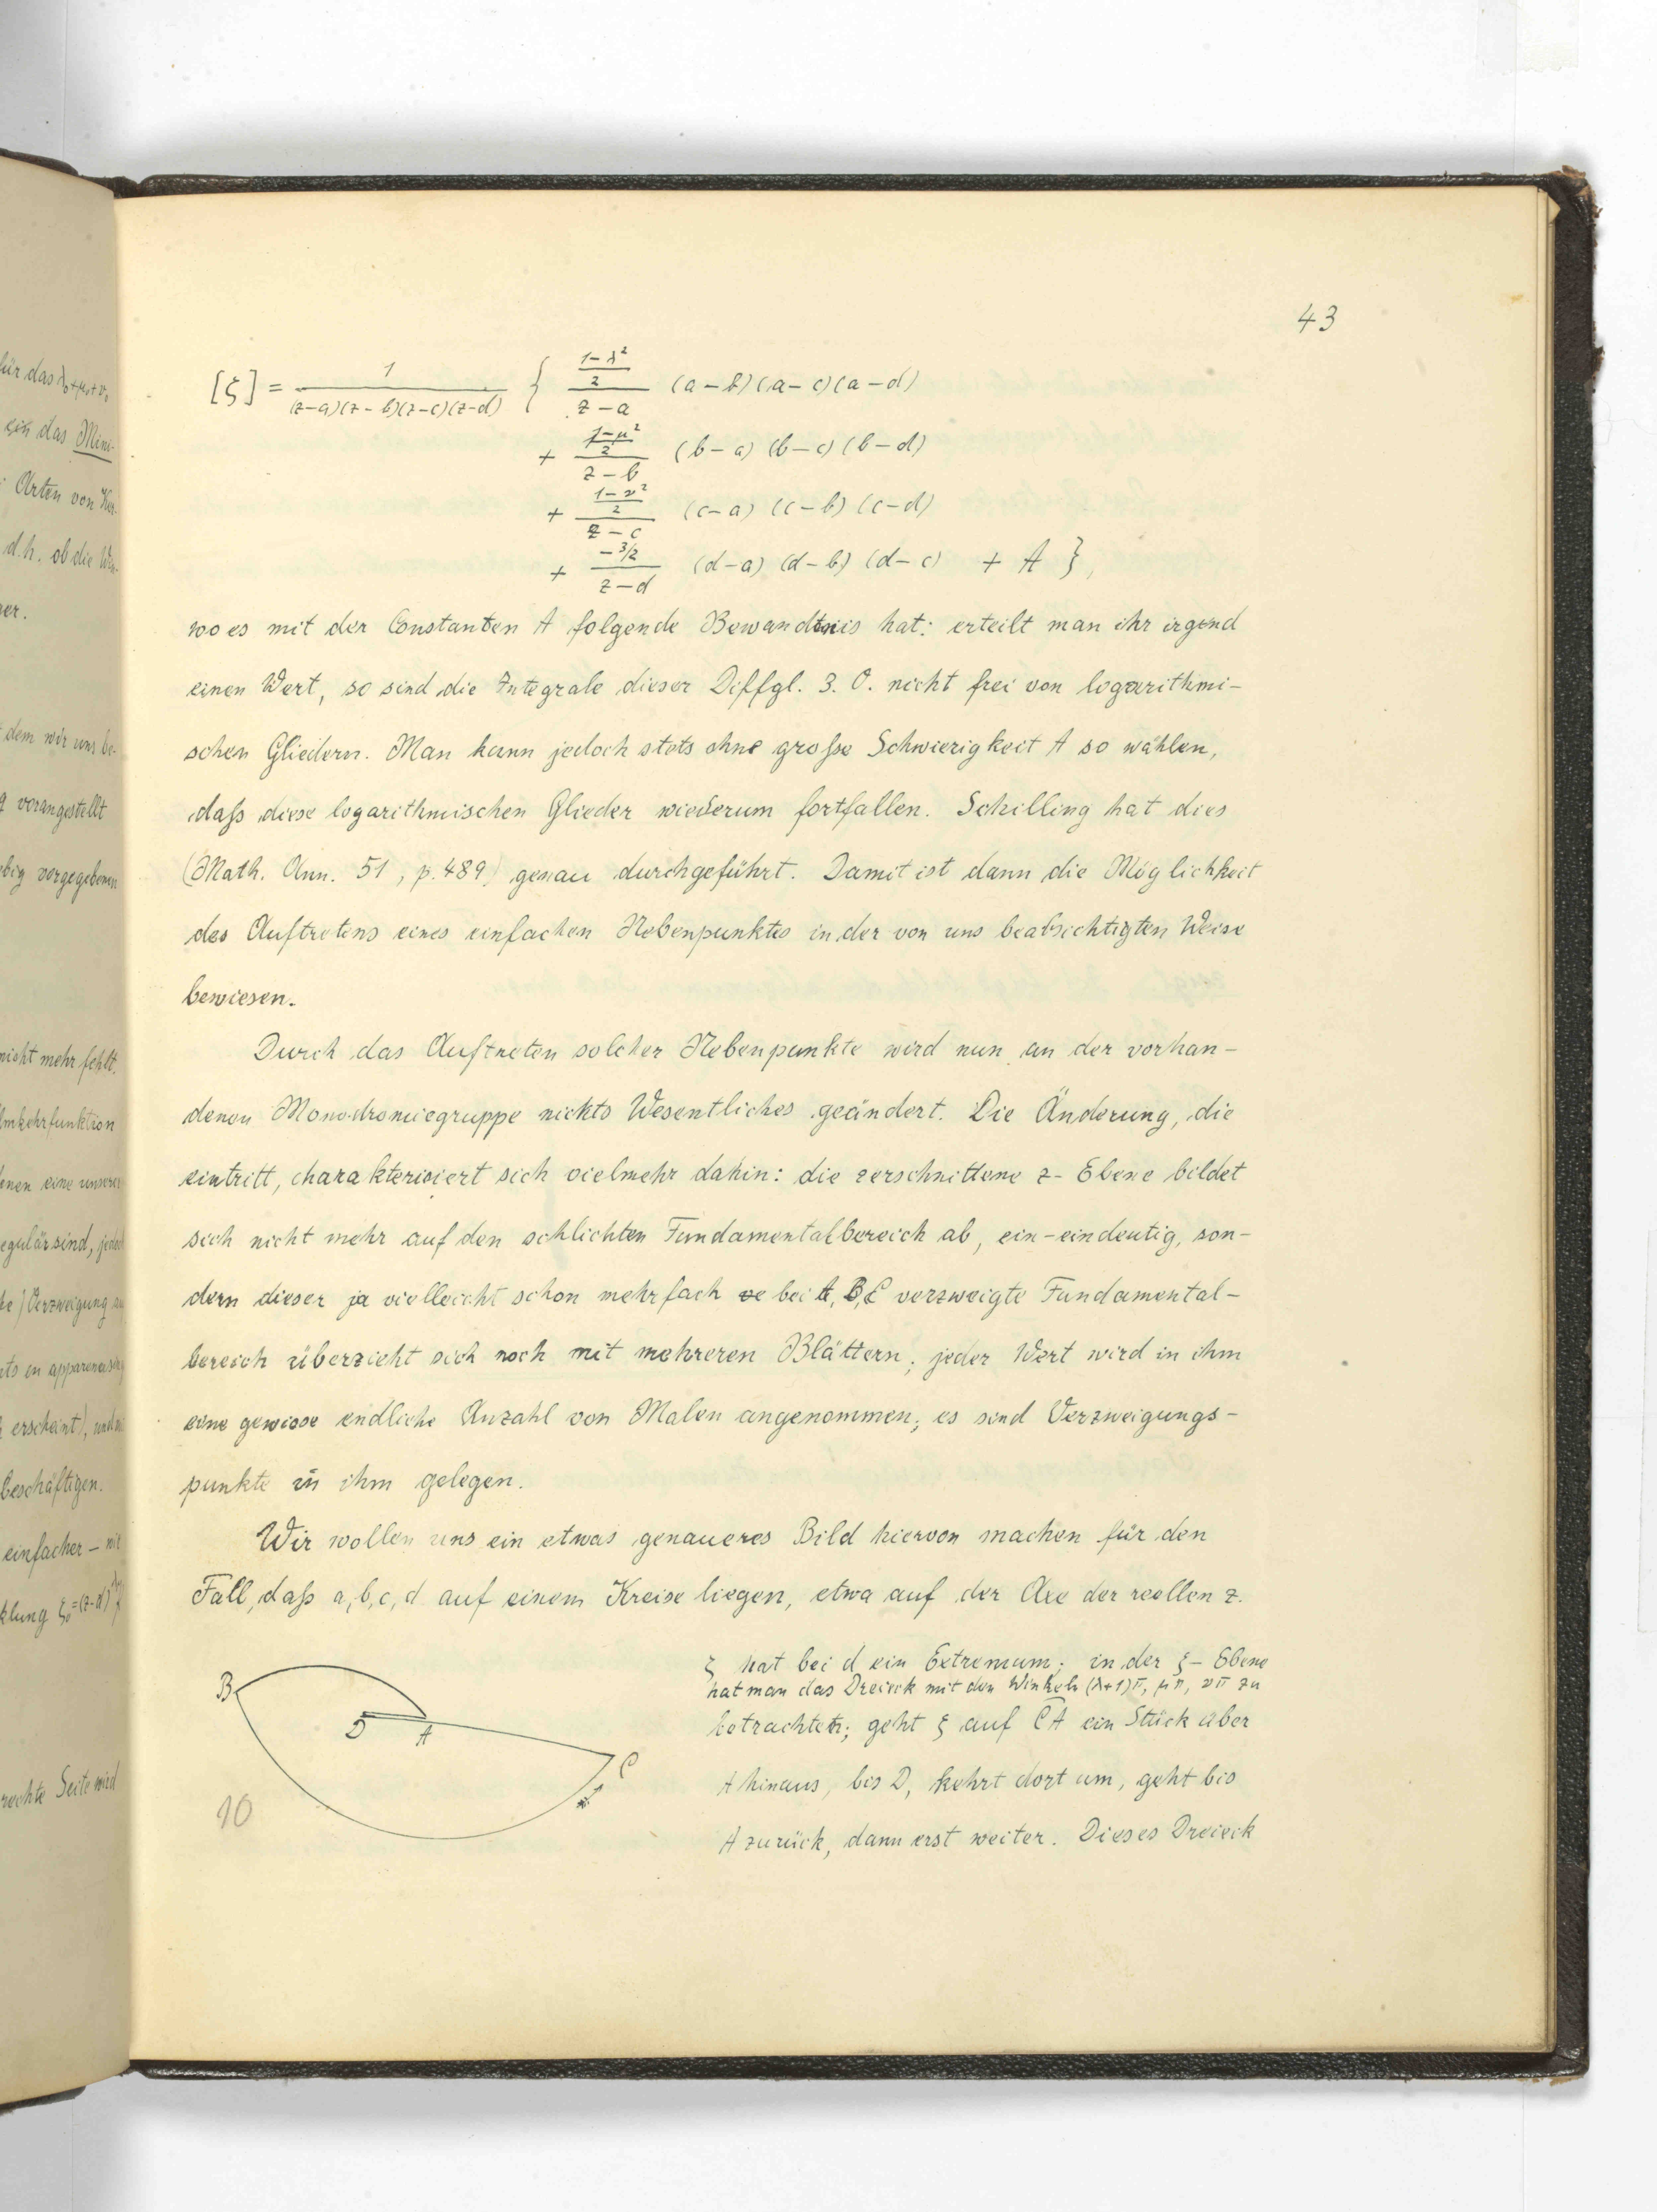 43
[ζ] = 1/((z-a)(z-b)(z-c)(z-d)) { ((1-λ²)/2)/(z-a) (a-b)(a-c)(a-d)
+ ((1-μ²)/2)/(z-b) (b-a)(b-c)(b-d)
+ ((1-ν²)/2)/(z-c) (c-a)(c-b)(c-d)
+ (-3/2)/(z-d) (d-a)(d-b)(d-c) + A },
wo es mit der Constanten A folgende Bewandtnis hat: erteilt man ihr irgend
einen Wert, so sind die Integrale dieser Diffgl. 3. O. nicht frei von logarithmi-
schen Gliedern. Man kann jedoch stets ohne große Schwierigkeit A so wählen,
daß diese logarithmischen Glieder wiederum fortfallen. Schilling hat dies
(Math. Ann. 51, p. 489) genau durchgeführt. Damit ist dann die Möglichkeit
des Auftretens eines einfachen Nebenpunktes in der von uns beabsichtigten Weise
bewiesen.
Durch das Auftreten solcher Nebenpunkte wird nun an der vorhan-
denen Monodromiegruppe nichts Wesentliches geändert. Die Änderung, die
eintritt, charakterisiert sich vielmehr dahin: die zerschnittene z-Ebene bildet
sich nicht mehr auf den schlichten Fundamentalbereich ab, ein-eindeutig, son-
dern dieser ja vielleicht schon mehrfach bei A, B, C verzweigte Fundamental-
bereich überzieht sich noch mit mehreren Blättern; jeder Wert wird in ihm
eine gewisse endliche Anzahl von Malen angenommen; es sind Verzweigungs-
punkte in ihm gelegen.
Wir wollen uns ein etwas genaueres Bild hiervon machen für den
Fall, daß a, b, c, d auf einem Kreise liegen, etwa auf der Axe der reellen z.
ζ hat bei d ein Extremum; in der ζ-Ebene
hat man das Dreieck mit den Winkeln (λ+1)π, μπ, νπ zu
betrachten; geht ζ auf CA ein Stück über
A hinaus, bis D, kehrt dort um, geht bis
A zurück, dann erst weiter. Dieses Dreieck
B
D
A
C
10
für das λ₀+μ₀+ν₀
das Mini-
Arten von
d.h. ob die
dem wir uns be-
vorangestellt
vorgegebenen
nicht mehr fehlt.
Umkehrfunktion
eine unserer
regulär sind, jedoch
Verzweigung
erscheint), und
beschäftigen.
einfacher - mit
rechte Seite wird